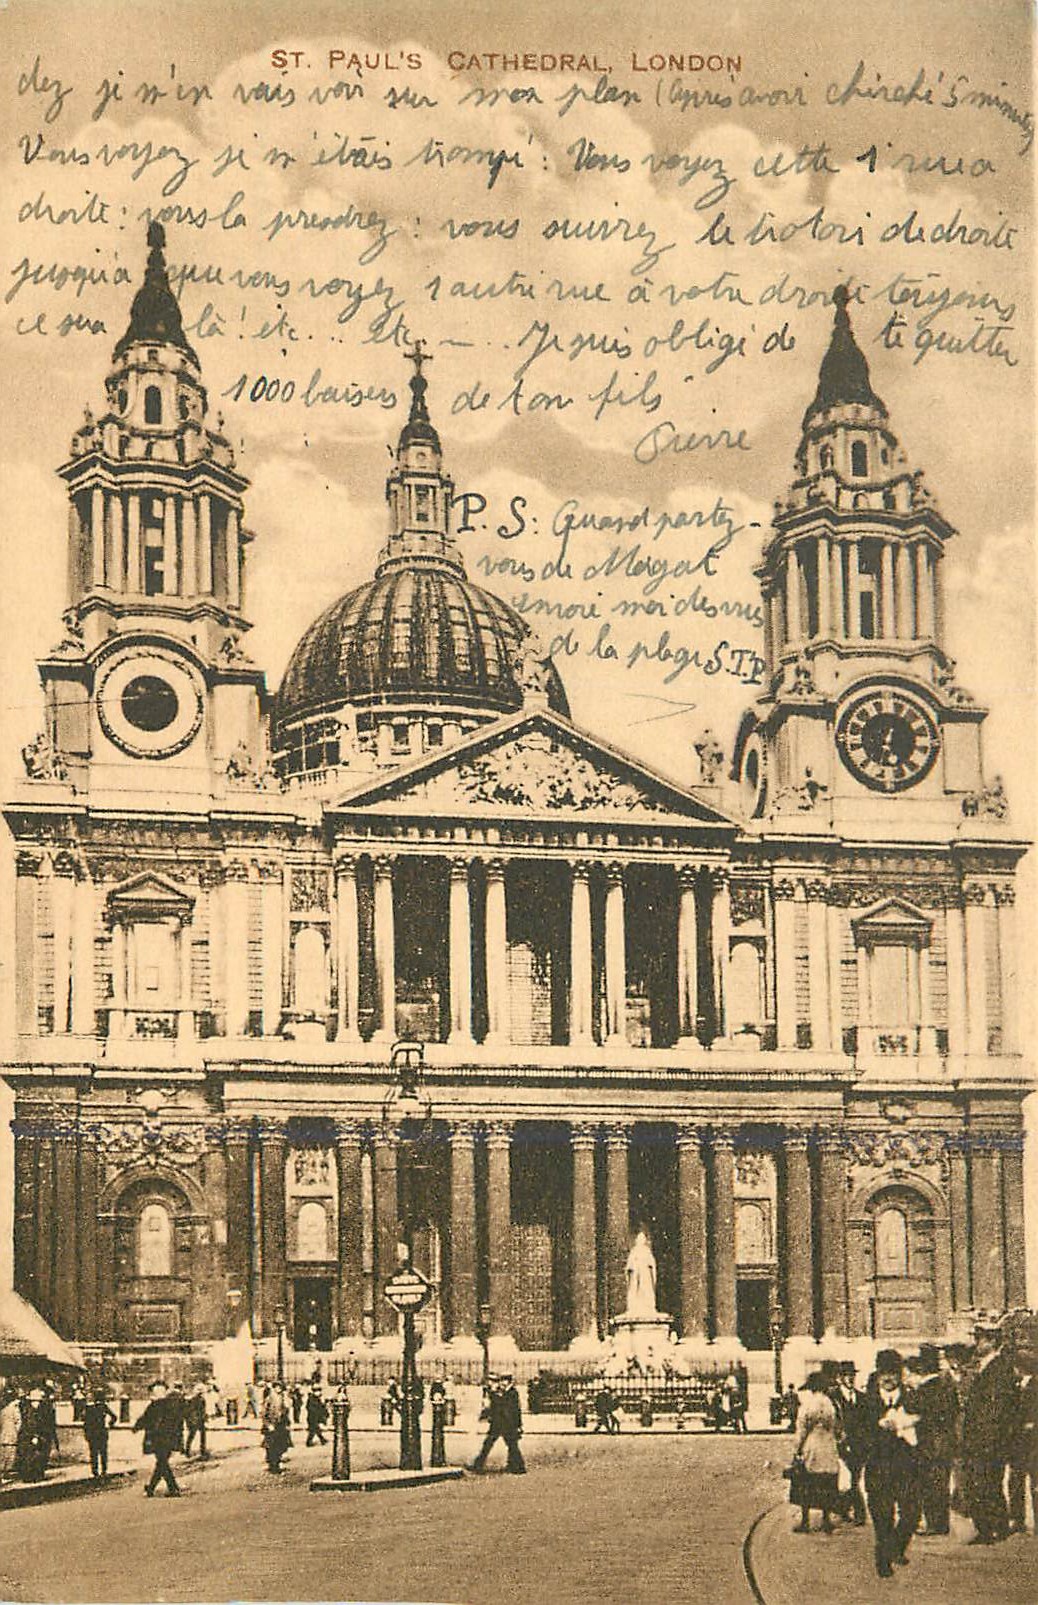 ST. PAUL'S CATHEDRAL, LONDON
dez je m'en vais voir sur mon plan (après avoir chirché 5 minutes)
Vous voyez je m'étais trompé: Vous voyez cette 1 rue a
droite: vous la prendrez: vous suivrez le trotoir de droite
jusqu'a que vous voyez 1 autre rue à votre droite toujours
ce sera là! etc... etc.... Je suis obligé de te quitter
1000 baisers de ton fils
Pierre
P. S: Quand partez-
vous de
envoie moi des vues
de la plage S.T.P